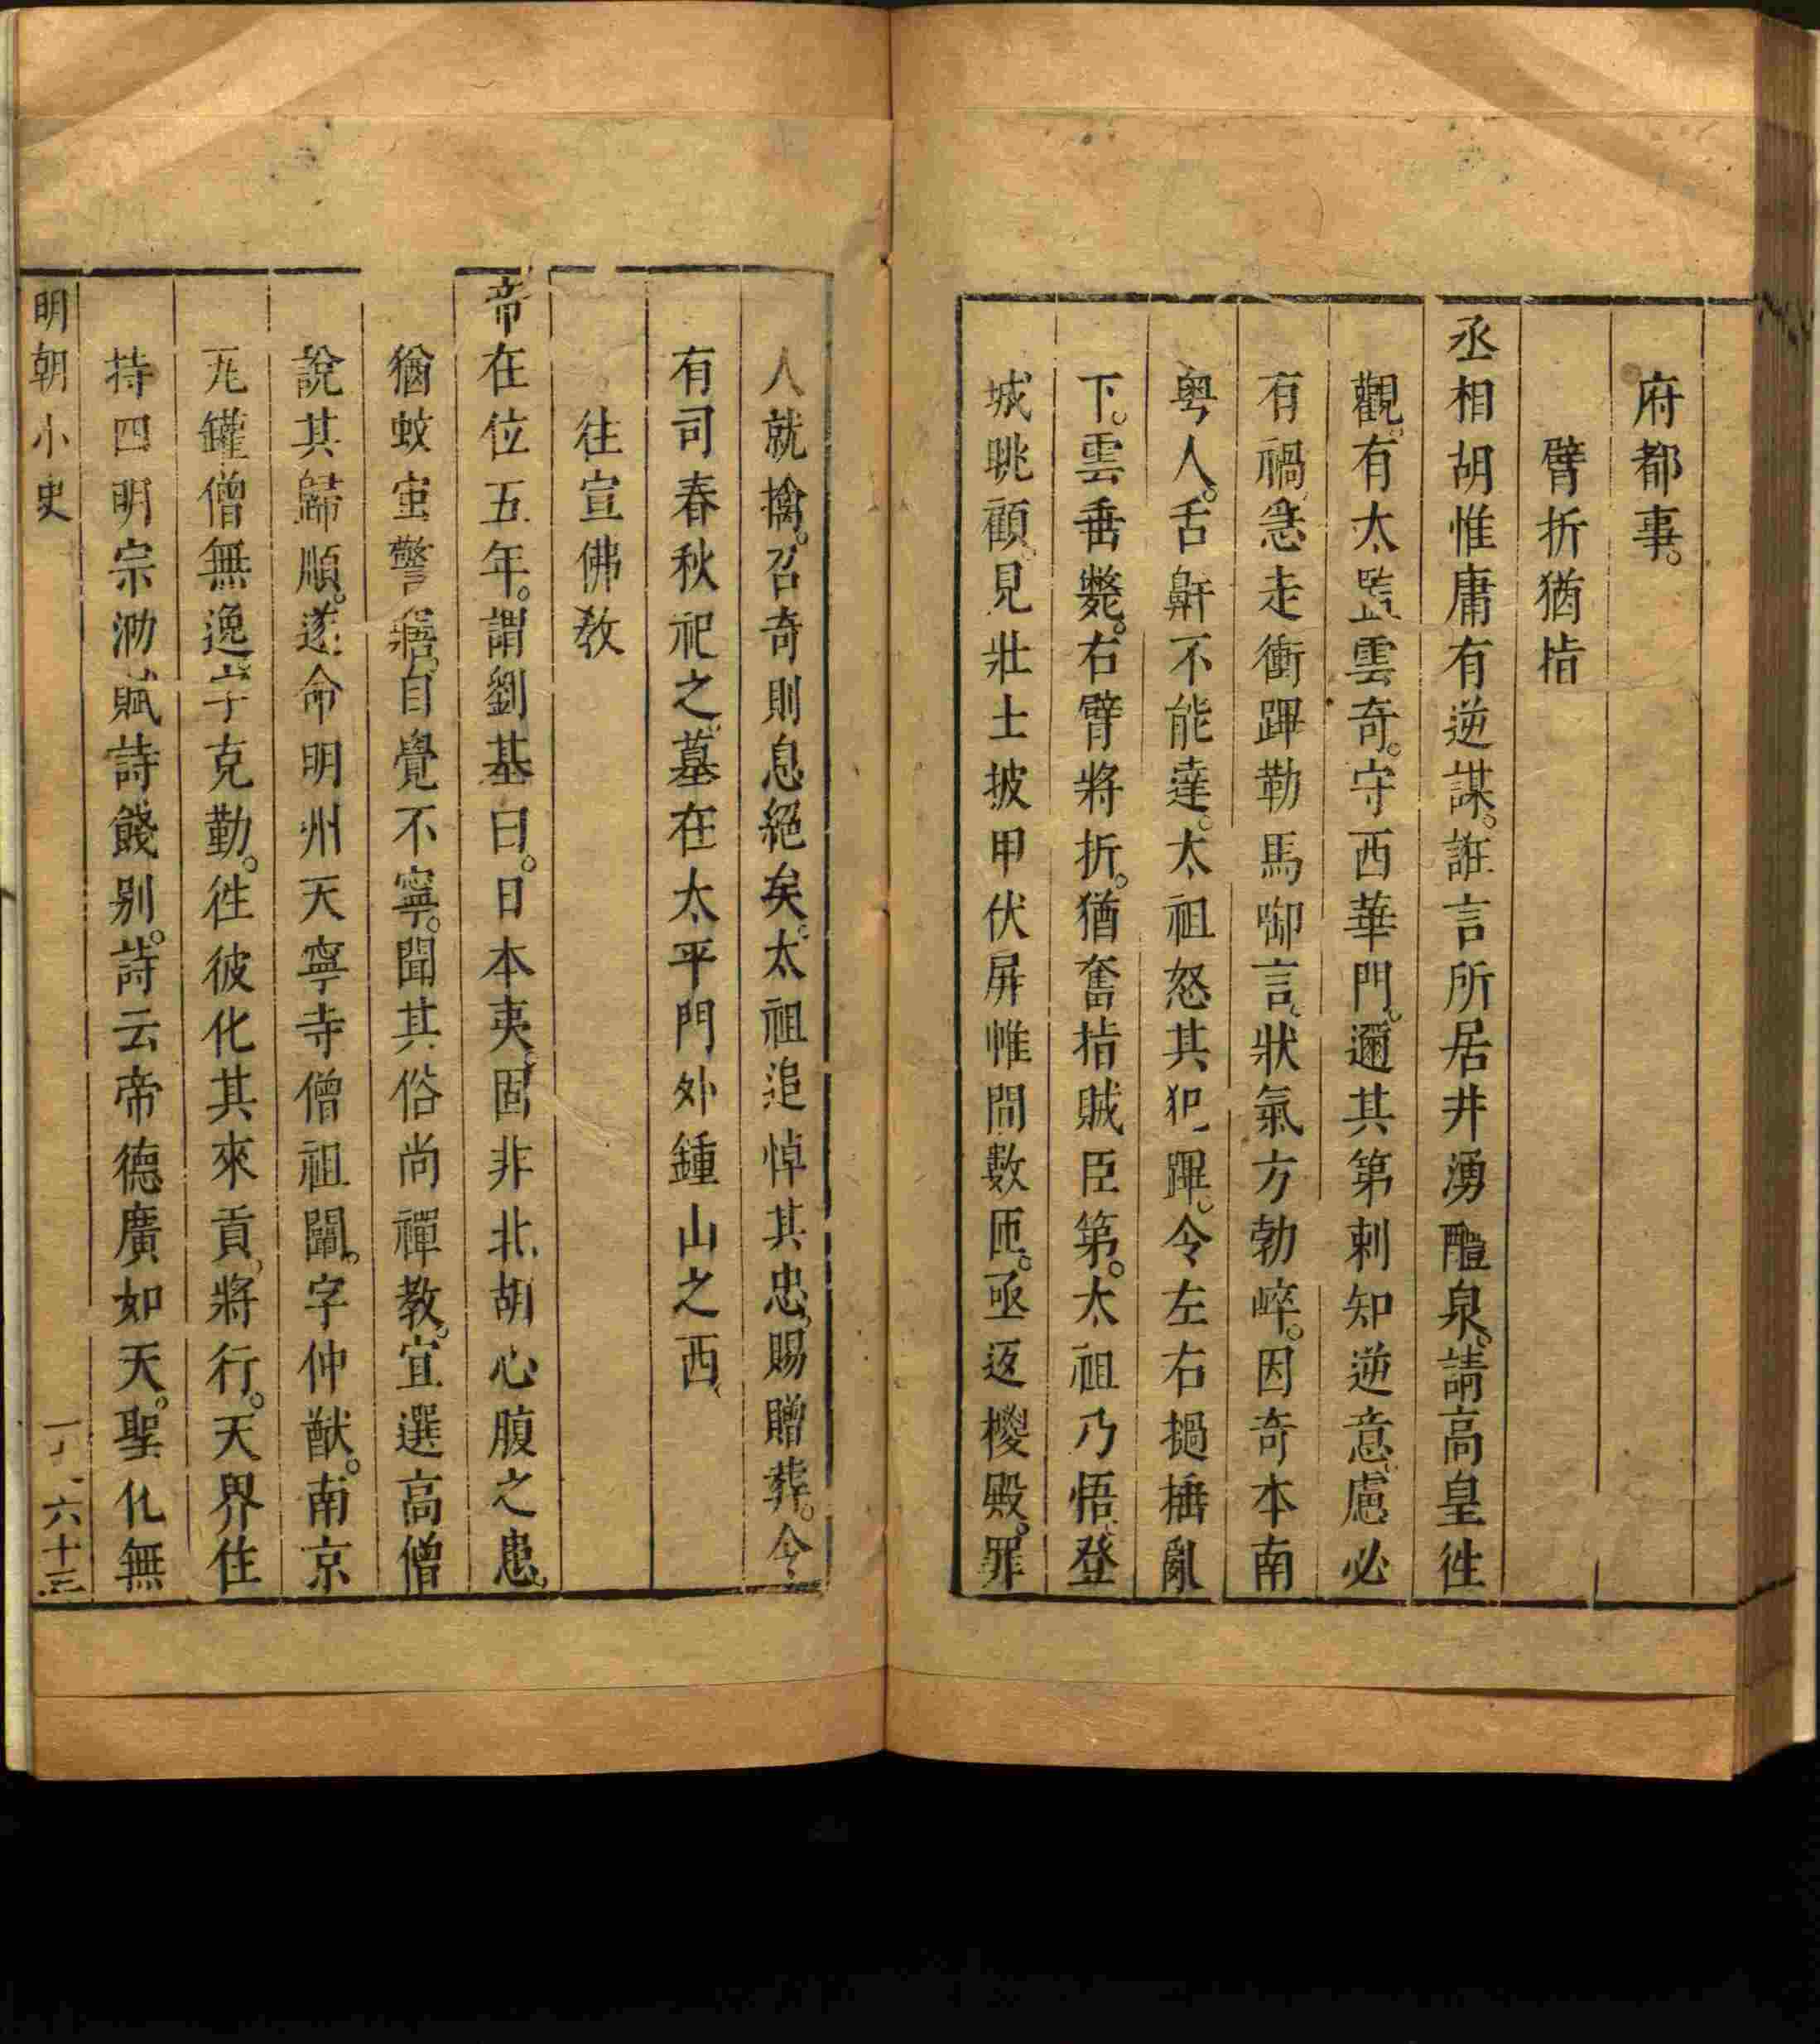 府都事。
臂折猶指
丞相胡惟庸有逆謀。誑言所居井湧醴泉。請高皇徃
觀。有太監雲奇。守西華門。邇其第刺知逆意。慮必
有禍。急走衝蹕勒馬啣言。狀氣方勃崪。因奇本南
粤人。舌鼾不能達。太祖怒其犯蹕。令左右撾捶亂
下。雲垂斃。右臂將折。猶奮指賊臣第。太祖乃悟。登
城眺顧。見壯士披甲伏屏帷間數匝。亟返椶殿。罪
人就擒。召奇則息絕矣。太祖追悼其忠。賜贈葬。今
有司春秋祀之。墓在太平門外鍾山之西、
往宣佛教
帝在位五年。謂劉基曰。日本夷。固非北胡心腹之患。
猶蚊䖟警寤。自覺不寧。聞其俗尚禪教。宜選高僧
說其歸順。遂命明州天寧寺僧祖闡。字仲猷。南京
瓦罐僧無逸字克勤。徃彼化其來貢。將行。天界住
持四明宗泐賦詩餞别。詩云帝德廣如天。聖化無
明朝小史 六十三